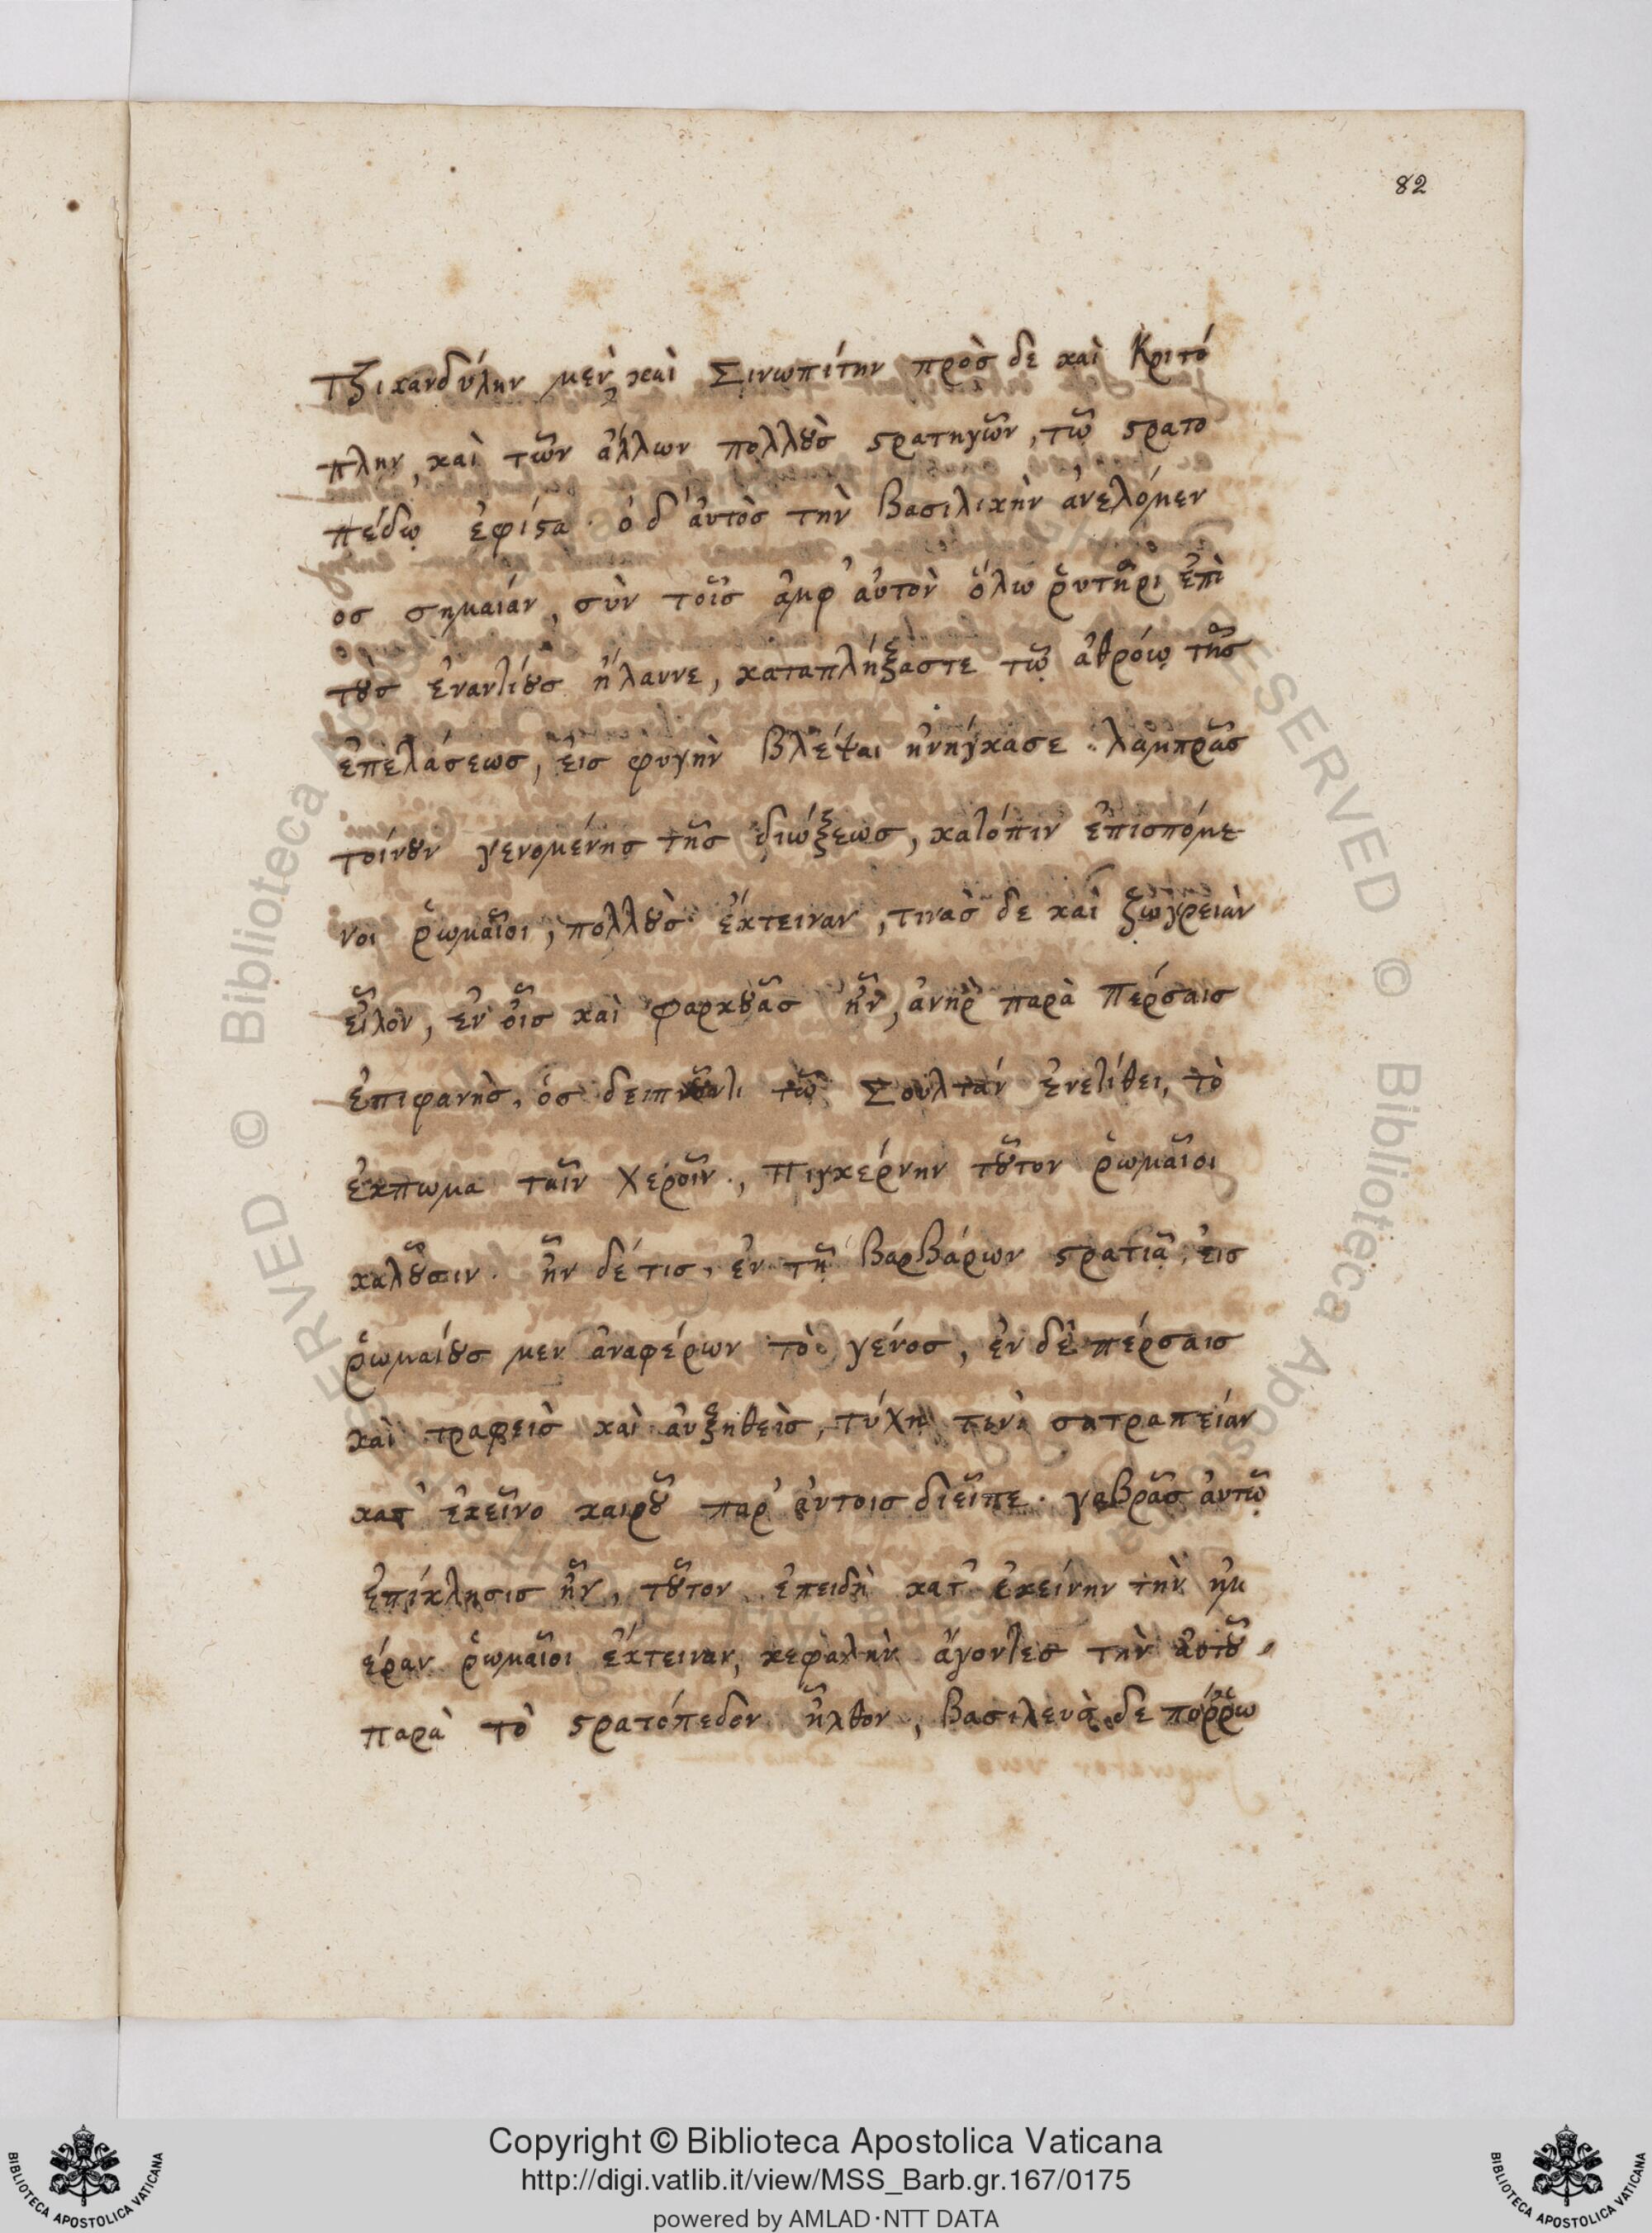 82
Τζικανδύλην μεν καὶ Σινωπίτην πρὸς δε καὶ Κριτό
πλην, καὶ τῶν ἄλλων πολλȣ̀ς ϛρατηγῶν, τῷ ϛρατο
πέδῳ ἐφίϛα· ὁ δ' ἀυτὸς τὴν Βασιλικὴν ἀνελόμεν
ος σημαιάν, σὺν τοῖς ἀμφ' ἀυτὸν ὅλω ῥυτῆρι ἐπὶ
τȣ̀ς ἐναντίȣς ἤλαννε, καταπλήξαστε τῷ ἀθρόῳ τῆς
ἐπελάσεως, ἐις φυγὴν Βλέψαι ἠνάγκασε. λαμπρᾶς
τοίνȣν γενομένης τῆς διώξεως, κατόπιν ἐπισπόμε-
νοι ῥωμαῖοι, πολλȣ̀ς ἔκτειναν, τινὰς δε καὶ ζωγρειὰν
εἷλον, ἐν οἷς καὶ Φαρκȣᾶς ἦν, ἀνὴρ παρὰ Πέρσαις
ἐπιφανὴς, ὁς δειπνȣ͂ντι τῷ Σουλτάν ἐνετίθει, τὸ
ἐκπωμα ταῖν Χεροῖν., Πιγκέρνην τȣ͂τον ῥωμαῖοι
καλȣ͂σιν. ἦν δέ τις, ἐν τῇ ΒαρΒάρων ϛρατιᾷ, ἐις
ῥωμαίȣς μεν ἀναφέρων τὸ γένος, ἐν δὲ πέρσαις
καὶ τραφεὶς καὶ ἀυξηθεὶς, τύχῃ τινὶ σατραπείαν
κατ' ἐκεῖνο καιρȣ͂ παρ' ἀυτοις διεῖπε. γαΒρᾶς ἀυτῷ
ἐπίκλησις ἦν, τȣ͂τον ἐπειδὴ κατ' ἐκείνην τὴν ἡμ
έραν ῥωμαῖοι ἔκτειναν, κεφαλὴν ἄγοντες τὴν ἀυτȣ͂
παρὰ τὸ ϛρατόπεδον ἦλθον, Βασιλεὺς δε πόῤῥω
Copyright © Biblioteca Apostolica Vaticana
http://digi.vatlib.it/view/MSS_Barb.gr.167/0175
powered by AMLAD·NTT DATA